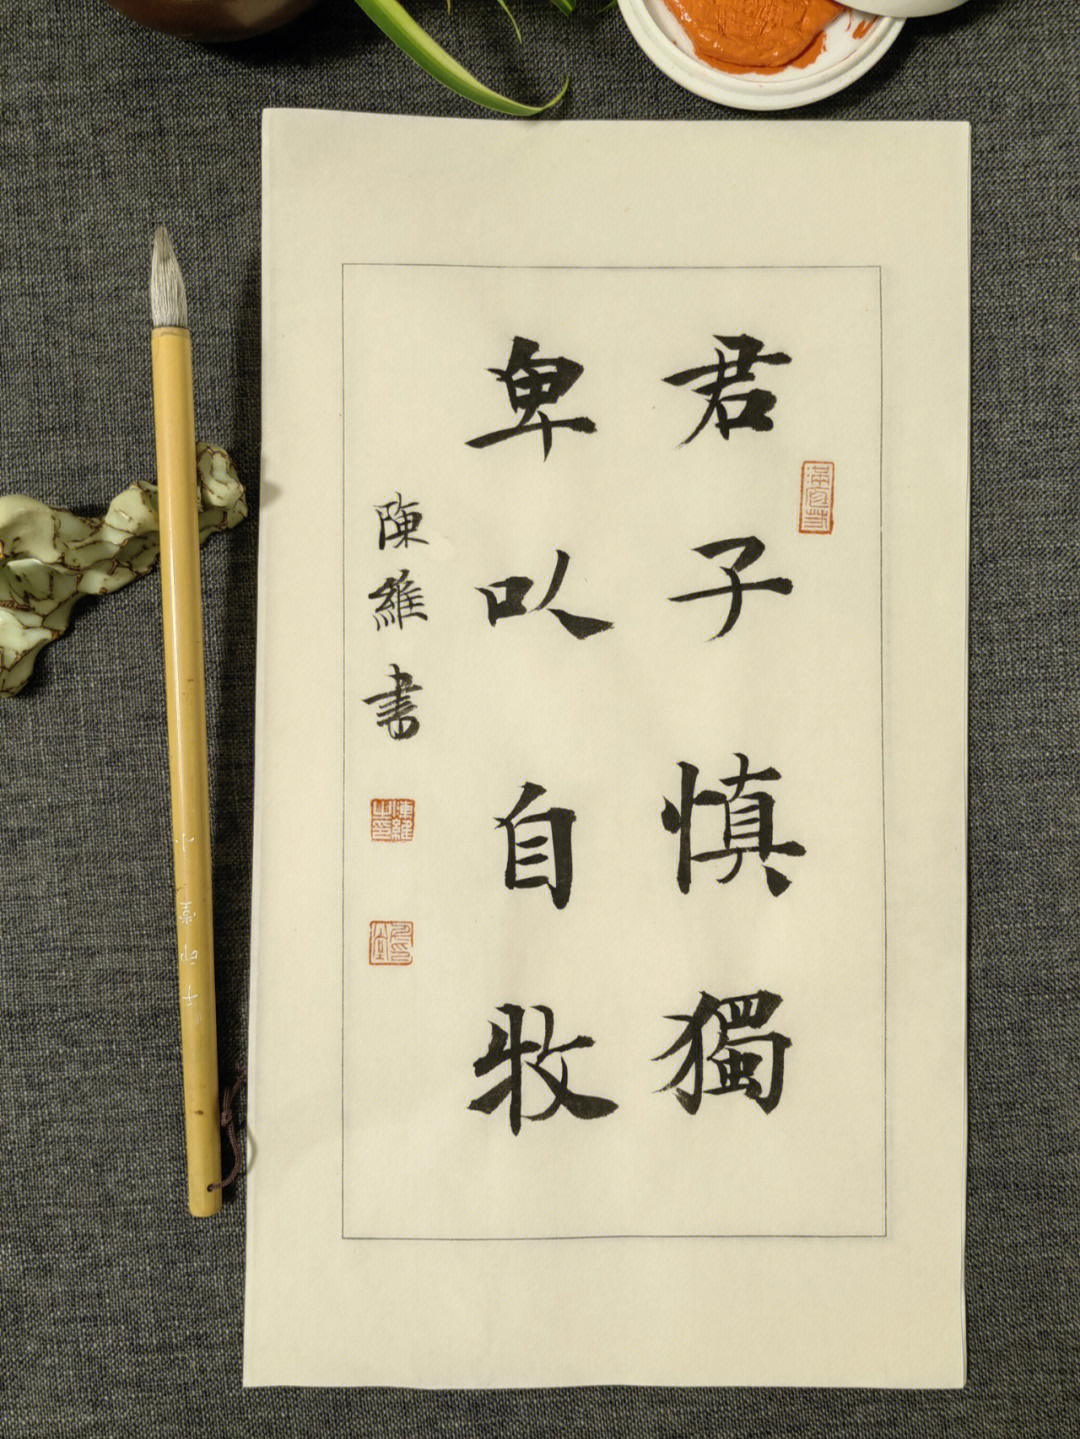 君子慎獨
卑以自牧
陳維書